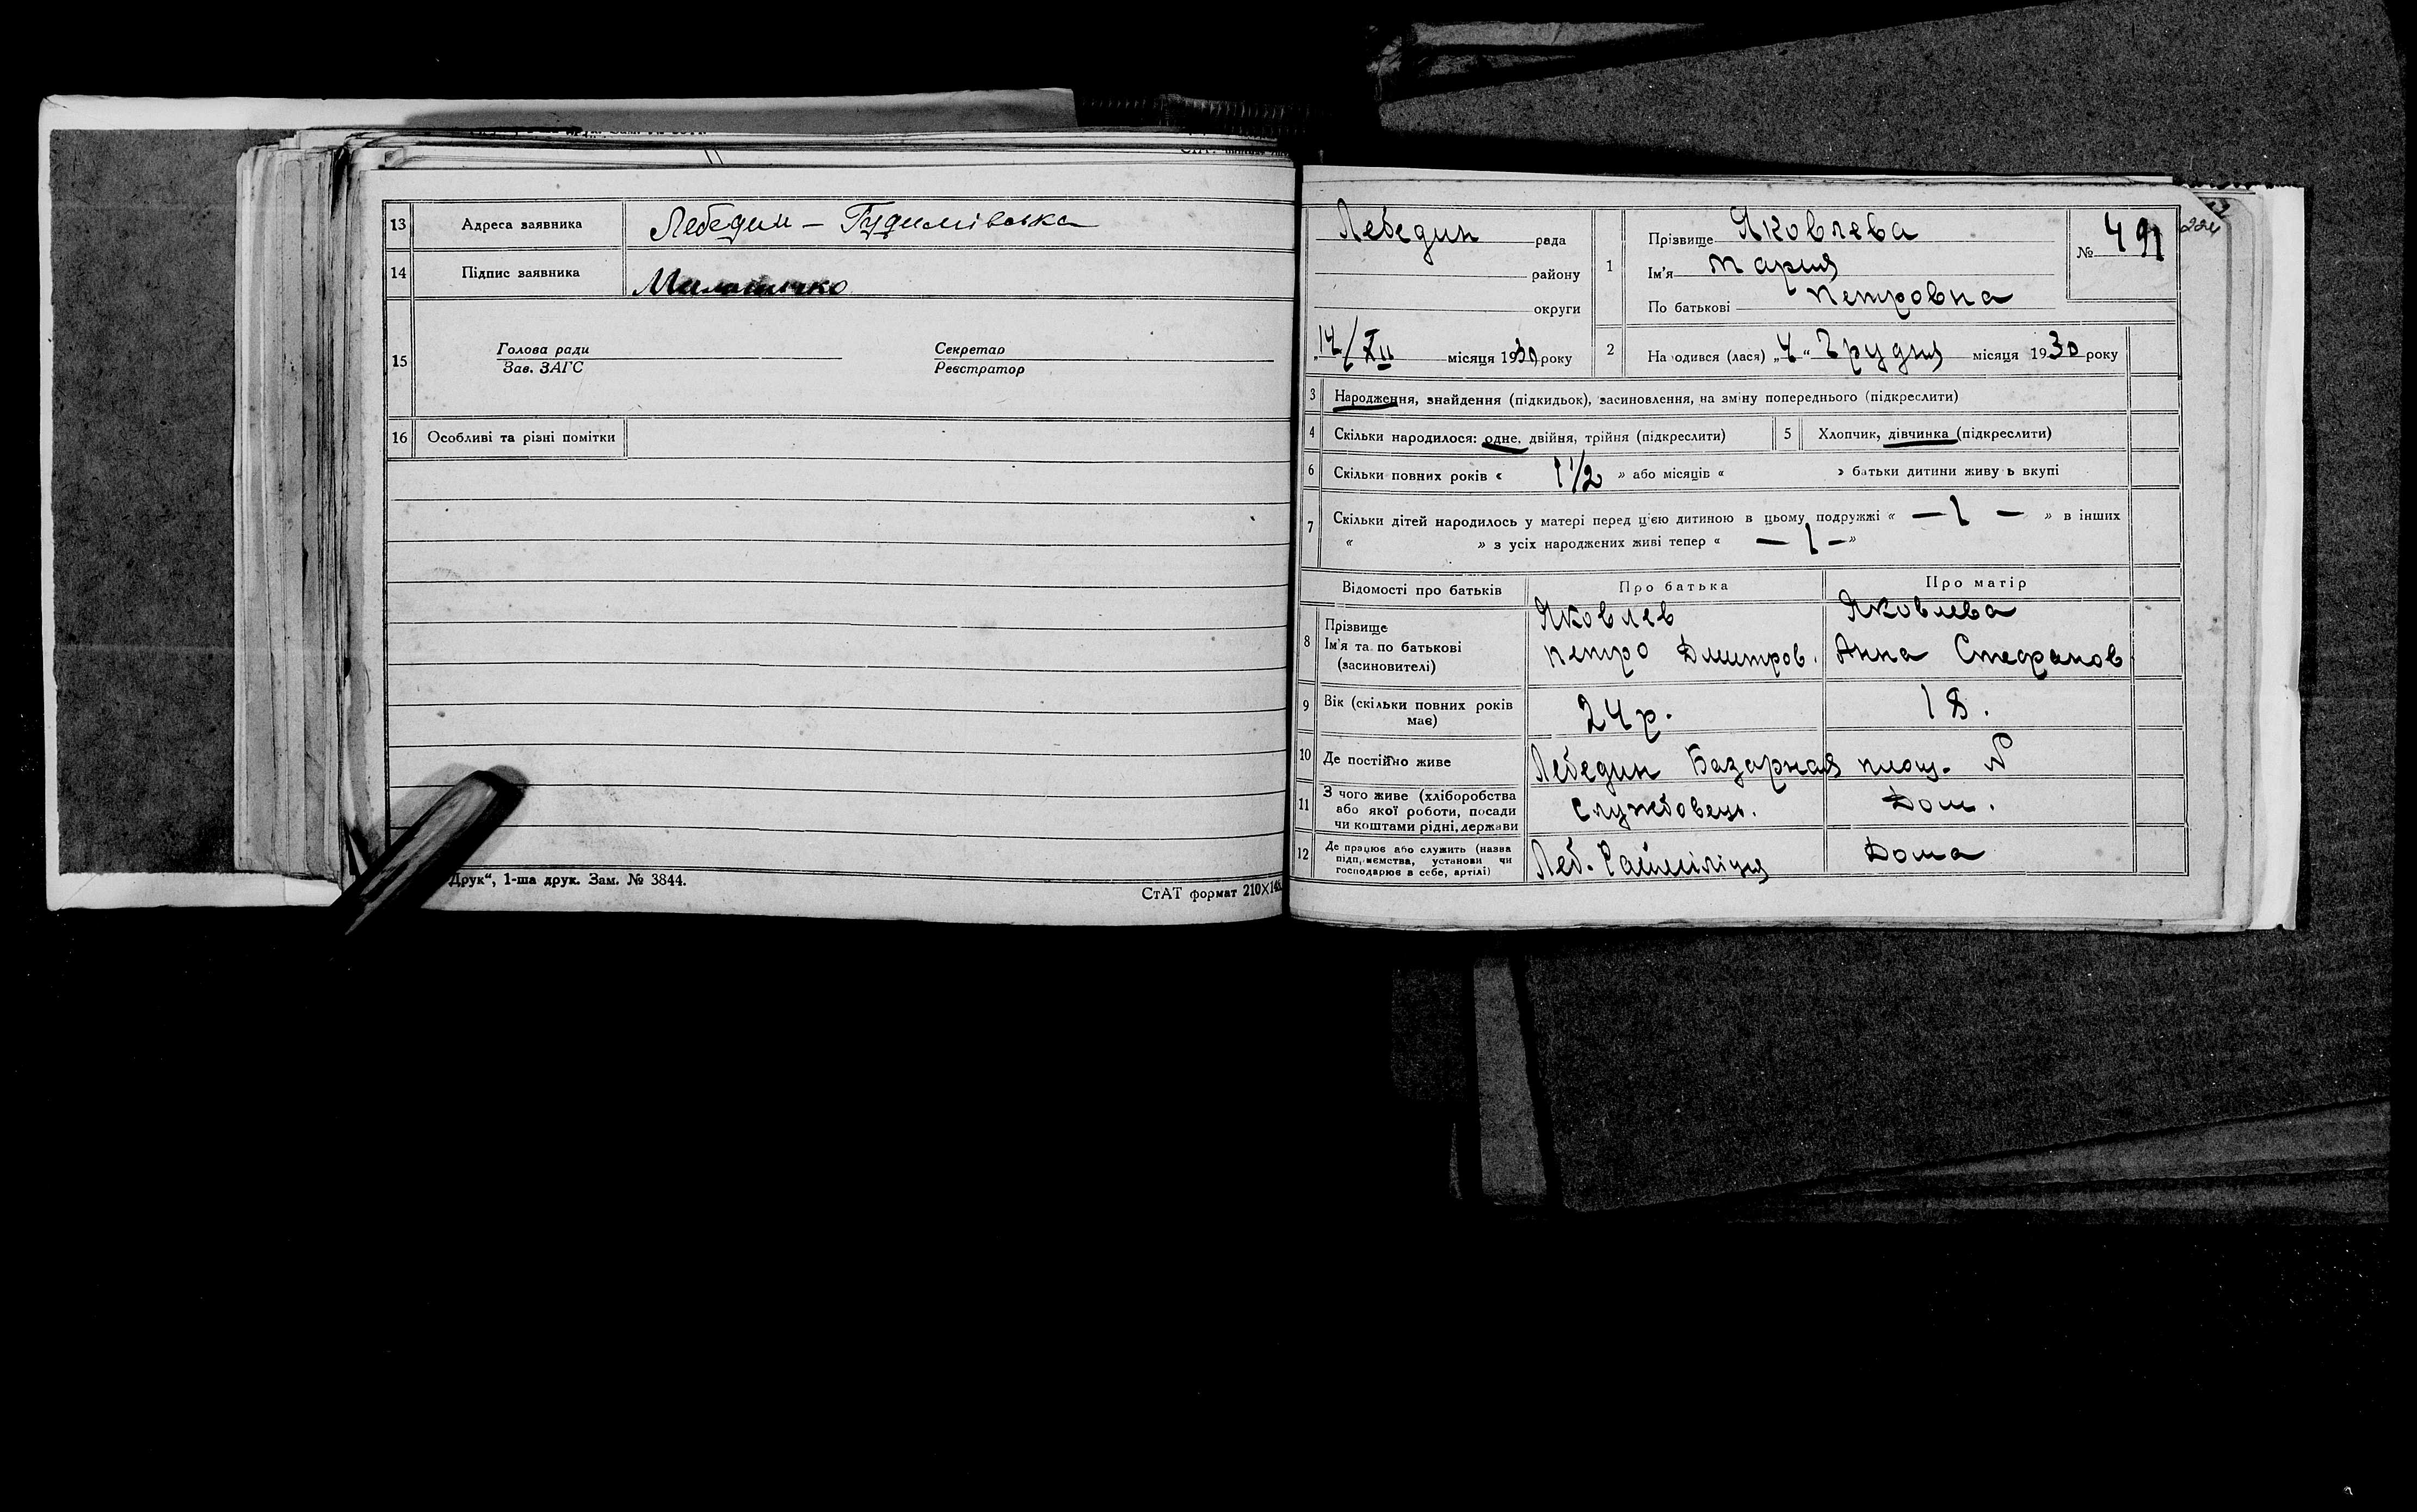 13 Адреса заявника Лебедин – Гудимівська
14 Підпис заявника
15 Голова ради Секретар
Зав. ЗАГС Реєстратор
16 Особливі та різні помітки
Друк“, 1-ша друк. Зам. № 3844.
СтАТ формат 210×148
Лебедин рада
району
округи
14/XII місяця 1930 року
1 Прізвище Яковлева
Ім'я Мария
По батькові Петровна
№ 491
224
2 На одився (лася) „4“ Грудня місяця 1930 року
3 Народження, знайдення (підкидьок), засиновлення, на зміну попереднього (підкреслити)
4 Скільки народилося: одне, двійня, трійня (підкреслити) 5 Хлопчик, дівчинка (підкреслити)
6 Скільки повних років « 1 1/2 » або місяців « » батьки дитини живу ь вкупі
7 Скільки дітей народилось у матері перед цією дитиною в цьому подружжі « — 1 — » в інших
« » з усіх народжених живі тепер « — 1 — »
Відомості про батьків Про батька Про матір
8 Прізвище Яковлев Яковлева
Ім'я та по батькові Петро Дмитров. Анна Стефанов
(засиновителі)
9 Вік (скільки повних років 24 р. 18.
має)
10 Де постійно живе Лебедин Базарная площ. №
11 З чого живе (хліборобства Службовець. Дом.
або якої роботи, посади
чи коштами рідні, держави
12 Де працює або служить (назва Леб. Райміліція Дома
підп, иємства, установи чи
господарює в себе, артілі)